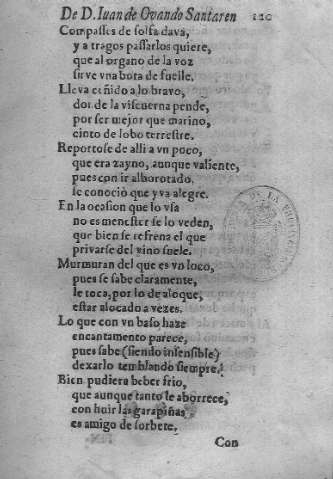 De D. Iuan de Ovando Santaren 120
Compasses de solfa dava,
y a tragos passarlos quiere,
que al organo de la voz
sirve vna bota de fuelle.
Lleva ceñido a lo bravo,
dos de la viscuerna pende,
por ser mejor que marino,
cinto de lobo terrestre.
Reportose de alli a vn poco,
que era zayno, aunque valiente,
pues con ir alborotado.
le conociò que yva alegre.
En la ocasion que lo vsa
no es menester se lo veden,
que bien se refrena el que
privarse del vino suele.
Murmuran del que es vn loco,
pues se sabe claramente,
le toca, por lo de aloque,
estar alocado a vezes.
Lo que con vn baso haze
encantamento parece,
pues sabe (siendo insensible)
dexarlo temblando siempre.
Bien pudiera beber frio,
que aunque tanto le aborrece,
con huir las garapiñas
es amigo de sorbete.
Con
DE LA